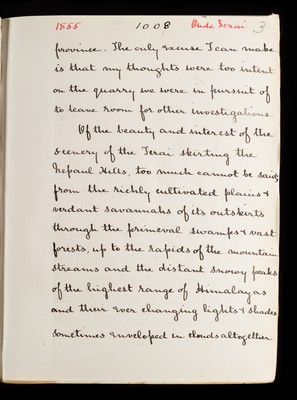 1855 1008 Oude Terai 3
province. The only excuse I can make
is that my thoughts were too intent
on the quarry we were in pursuit of
to leave room for other investigations.
Of the beauty and interest of the
scenery of the Terai skirting the
Nepaul Hills, too much cannot be said;
from the richly cultivated plains &
verdant savannahs of its outskirts
through the primeval swamps & vast
forests, up to the rapids of the mountain
streams and the distant snowy peaks
of the highest range of Himalayas
and their ever changing lights & shades
sometimes enveloped in clouds altogether